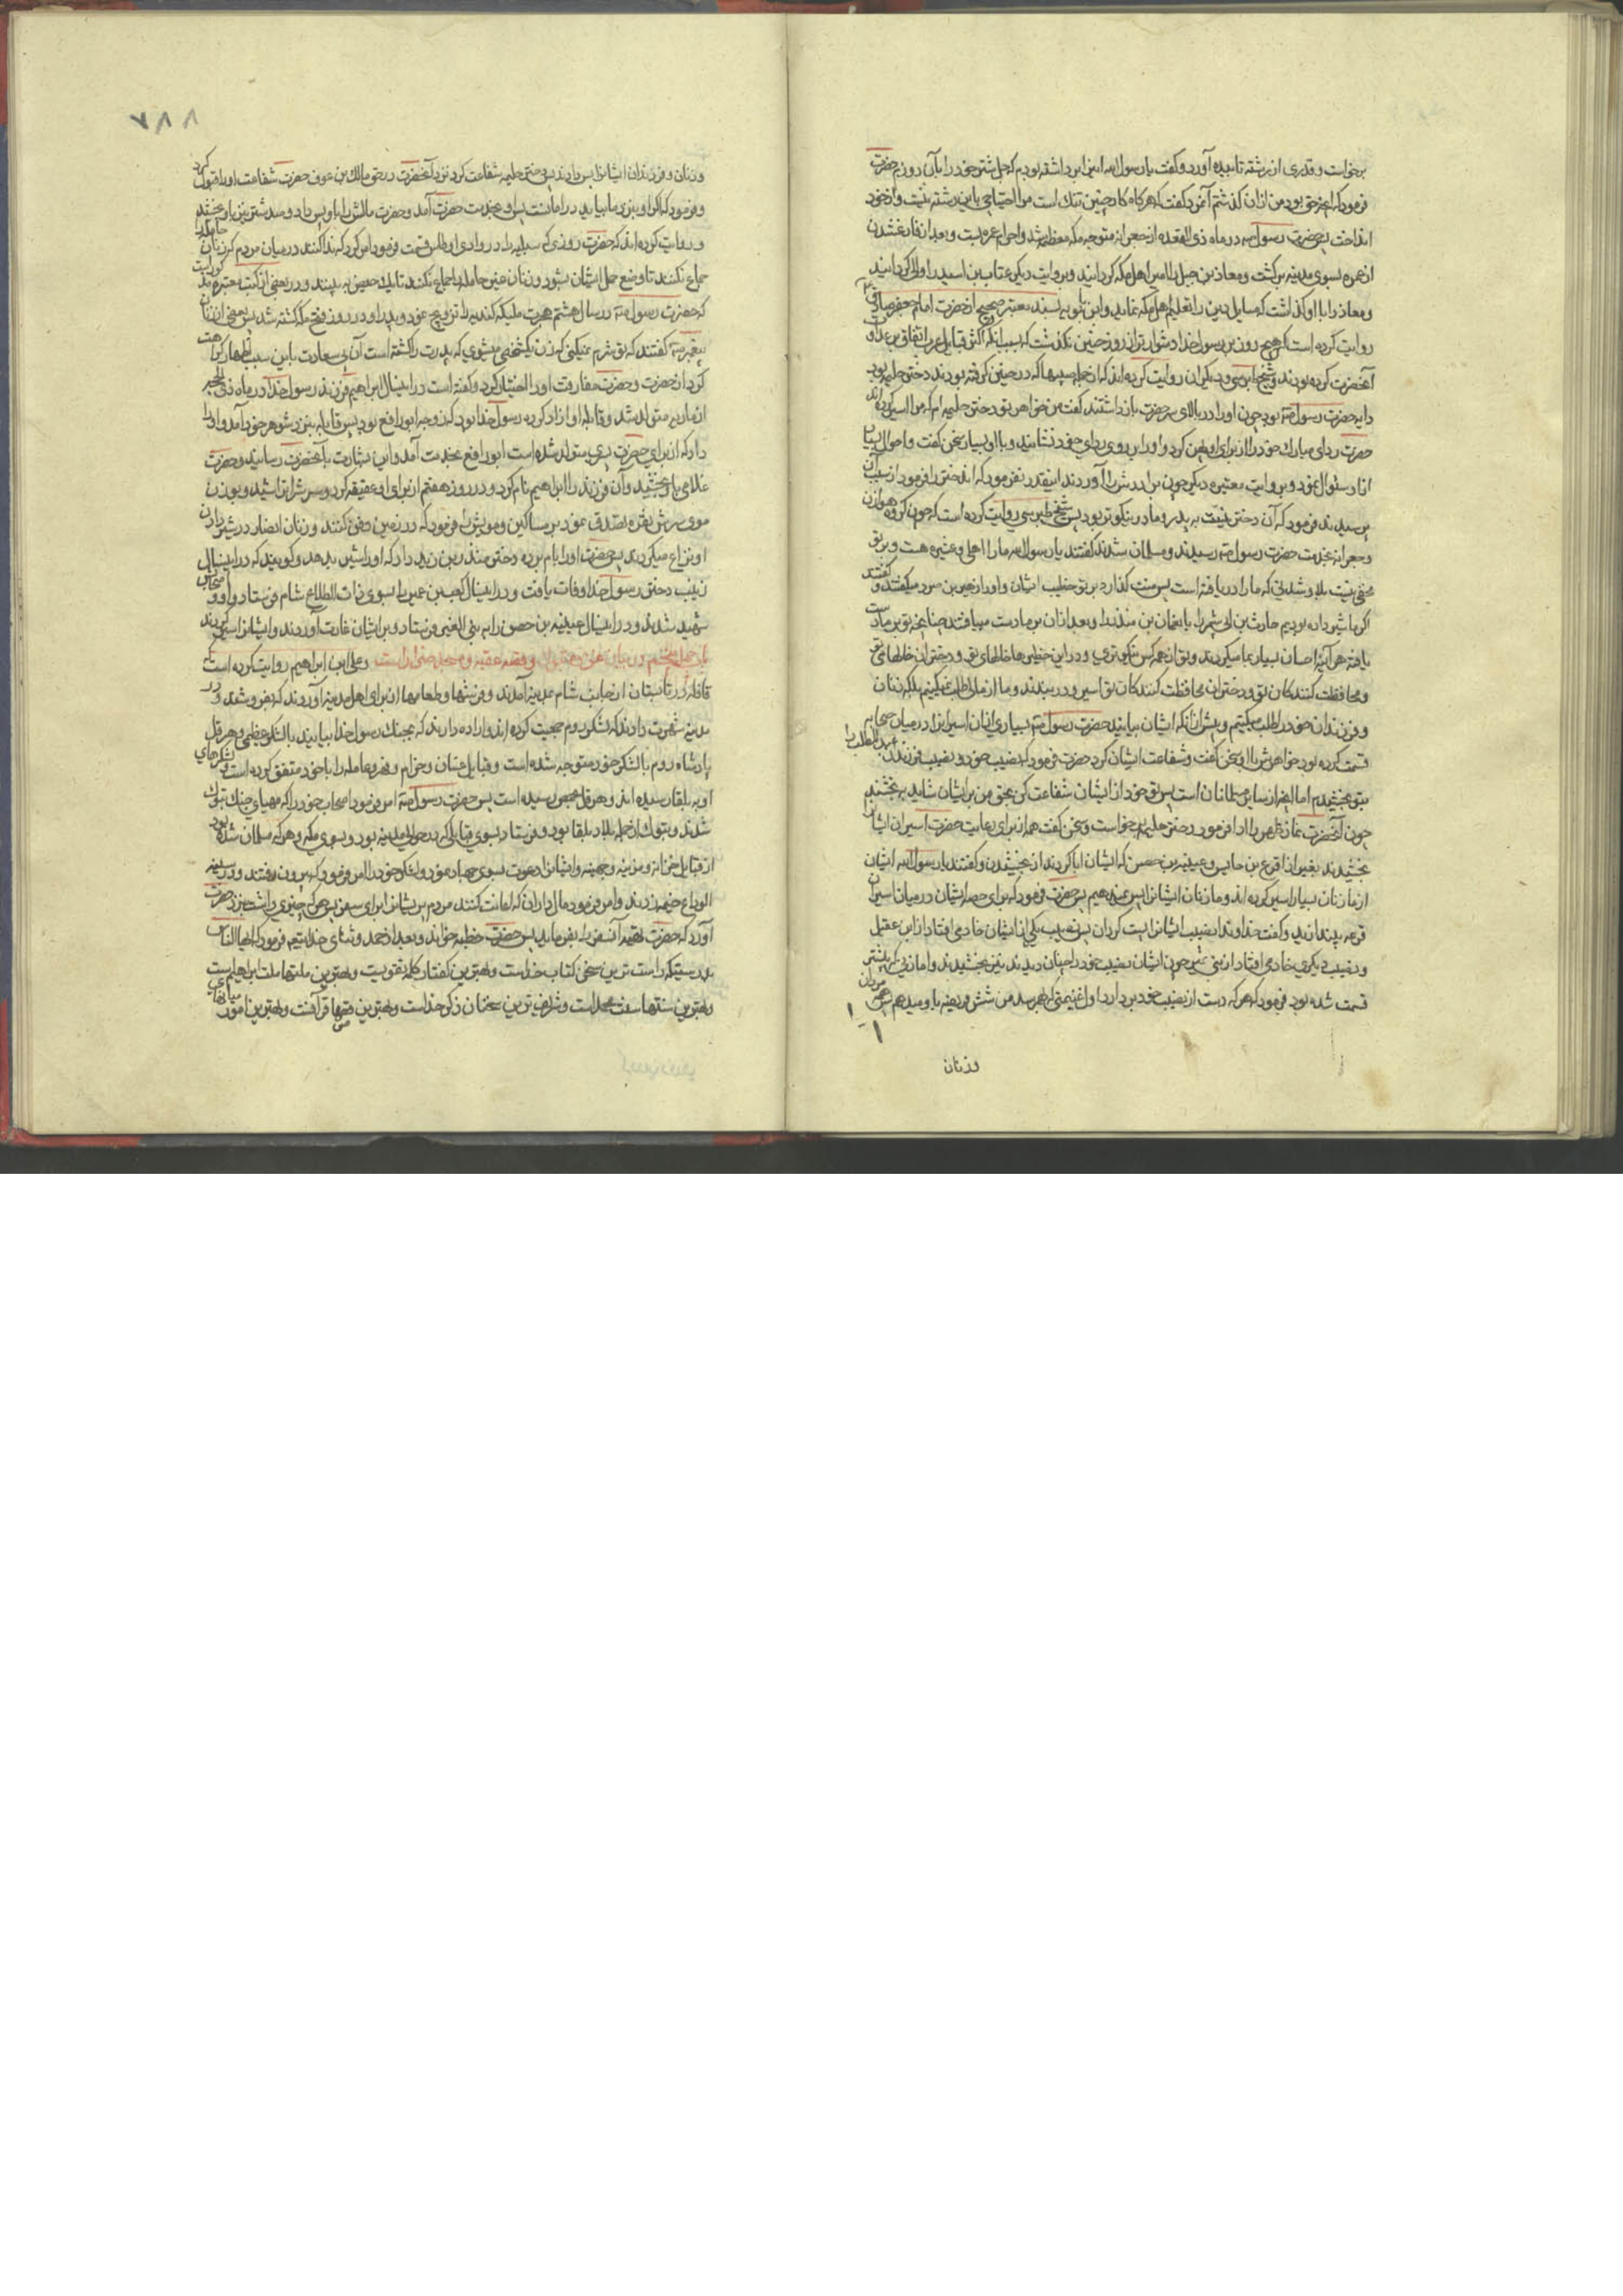 برخواست و قدری از رشته تابیده آورد و گفت یا رسول الله این را برداشته بودم که جل شتر خود را بآن دوزم حضرت
فرمود که آنچه حق بود من از آن گذشتم آنمرد گفت که هر گاه کار چنین تنک است مرا احتیاجی باین رشته نیست و از خود
انداخت پس حضرت رسول ص در ماه ذی القعده از جعرانه متوجه مکه معظمه شد و احرام عمره بست و بعد از فارغ شدن
از عمره بسوی مدینه برگشت و معاذ بن جبل را امیر اهل مکه گردانید و بروایت دیگر عتاب بن اسید را والی گردانید
و معاذ را با او گذاشت که مسایل دین را تعلیم اهل مکه نماید و ابن بابویه بسند معتبر صحیح از حضرت امام جعفر صادق ع
روایت کرده است که هیچ روز بر رسول خدا دشوارتر از روز حنین نگذشت که بسبب آنکه اکثر قبایل عرب اتفاق بر عداوت
آنحضرت کرده بودند و شیخ طبرسی و دیگران روایت کرده‌اند که از جمله سبیها که در حنین گرفته بودند دختر حلیمه بود
دایه حضرت رسول ص بود چون او را در بالای سر حضرت بازداشتند گفت من خواهر تو دختر حلیمه ام که مرا اسیر کرده اند
حضرت ردای مبارک خود را از برای او پهن کرد و او را بر روی ردای خود نشانید و با او بسیار سخن گفت و احوال بسیار
از او سئوال نمود و بروایت معتبره دیگر چون برادرش را آوردند اینقدر نفرمود که آن دختر را فرمود از سبب آن
پرسیدند فرمود که آن دختر نسبت به پدر و مادر نیکوتر بود پس شیخ طبرسی روایت کرده است که چون گروه هوازن
در جعرانه بخدمت حضرت رسول ص رسیدند و مسلمان شدند گفتند یا رسول الله ما را اهل و عشیره هست و بر تو
مخفی نیست بلا و شدتی که ما را دریافته است پس منت گذار بر ما
و محافظت کنندگان تو و دختران محافظت کنندگان تو اسیر و دربندند و ما از تو مال طلب نمیکنیم بلکه زنان
و فرزندان خود را طلب میکنیم و پیش از آنکه ایشان بیایند حضرت رسول ص بسیاری از آن اسیران را در میان صحابه
قسمت کرده بود خواهرش با او سخن گفت و شفاعت ایشان کرد حضرت فرمود که نصیب خود و نصیب فرزندان عبدالمطلب را
بتو بخشیدم اما آنچه از سایر مسلمانان است پس تو خود از ایشان شفاعت کن بحق من بر ایشان شاید ببخشند
چون آنحضرت نماز ظهر را ادا فرمود دختر حلیمه برخواست و سخن گفت همه از برای رعایت حضرت اسیران ایشان را
بخشیدند بغیر از اقرع بن حابس و عیینه بن حصن که ایشان ابا کردند از بخشیدن و گفتند یا رسول الله ایشان
از ما زنان بسیار اسیر کرده اند و ما زنان ایشان را پس نمیدهیم پس حضرت فرمود که برای حصه ایشان در میان اسیران
قرعه بیندازید و گفت خداوندا نصیب ایشان را پست گردان پس نصیب یکی از ایشان خادمی افتاد از ابن عقیل
و نصیب دیگری خادمی افتاد از بنی نمیر چون ایشان نصیب خود را چنان دیدند نیز بخشیدند و اما زنی که پیشتر
قسمت شده بود فرمود که هر که دست از نصیب خود بردارد از اول غنیمتی که بهم رسد من شش فریضه باو میدهم پس همه مردان
وزنان
٧٨٨
و زنان و فرزندان ایشان را پس دادند پس دختر حلیمه شفاعت کرد نزد آنحضرت در حق مالک بن عوف حضرت شفاعت او را قبول کرد
و فرمود که اگر او بنزد ما بیاید در امانست پس او بخدمت حضرت آمد و حضرت مالش را باو پس داد و صد شتر نیز باو بخشید
و روایت کرده اند که حضرت روزی که سبایا را در وادی اوطاس قسمت فرمود امر کرد که ندا کنند در میان مردم که زنان حامله را
جماع نکنند تا وضع حمل ایشان بشود و زنان غیر حامله را جماع نکنند تا یک حیض ببینند و در بعضی از کتب معتبره مذکور است
که حضرت رسول ص در سال هشتم هجرت ملیکه کندیه را تزویج نمود و پدر او در روز فتح مکه کشته شد پس بعضی از زنان
پیغمبر ص گفتند که تو شرم نمیکنی که زن شخصی میشوی که پدرت را کشته است آن بی سعادت باین سبب اظهار کراهت
کرد از حضرت و حضرت مفارقت او را اختیار کرد و گفته است در این سال ابراهیم فرزند رسول خدا در ماه ذی الحجه
از ماریه متولد شد و قابله او آزاد کرده رسول خدا بود که زوجه ابو رافع بود پس قابله بنزد شوهر خود آمد و او را خبر
داد که از برای حضرت پسری متولد شده است ابو رافع بخدمت آمد و این بشارت بآنحضرت رسانید و حضرت
غلامی باو بخشید و آن فرزند را ابراهیم نام کرد و در روز هفتم از برای او عقیقه کرد و سرش را تراشید و بوزن
موی سرش نقره تصدق نمود بر مساکین و مویش را فرمود که در زمین دفن کنند و زنان انصار در شیر دادن
او نزاع میکردند پس حضرت او را بام برده دختر منذر بن زید داد که او را شیر بدهد و گویند که در این سال
زینب دختر رسول خدا وفات یافت و در این سال کعب بن عمیر را بسوی ذات الطلاع شام فرستاد و او و اصحابش
شهید شدند و در این سال عیینه بن حصن را به بنی العنبر فرستاد و بر ایشان غارت آوردند و ایشان را اسیر کردند
باب چهل و پنجم در بیان غزوه تبوک و قصه عقبه و مسجد ضرار است و علی ابن ابراهیم روایت کرده است که
قافله در تابستان از جانب شام بمدینه آمدند و فرشها و طعامها از برای اهل مدینه آوردند که بفروشند و در
مدینه شهرت دادند که لشکر روم جمعیت کرده اند و اراده دارند که بجنگ رسول خدا بیایند با لشکر عظیمی و هرقل
پادشاه روم با لشکر خود متوجه شده است و قبایل غسان و جذام و فهر و عامله را با خود متفق کرده است و لشکرهای
او به بلقا رسیده اند و هرقل بحمص رسیده است پس حضرت رسول ص امر فرمود اصحاب خود را که مهیای جنگ تبوک
شدند و تبوک از جمله بلاد بلقا بود و فرستاد بسوی قبایلی که در حوالی مدینه بود و بسوی مکه و هر که مسلمان شده بود
از قبایل خزاعه و مزینه و جهینه و ایشان را دعوت بسوی جهاد نمود و لشکر خود را امر فرمود که بیرون رفتند و در ثنیة
الوداع خیمه زدند و امر فرمود مال داران که اعانت کنند مردم پریشان را برای سفر پس هر که چیزی داشت بنزد حضرت
آورد که حضرت بفرماید پس حضرت خطبه خواند و بعد از حمد و ثنای خدا تعالی فرمود که ایها الناس
بدرستیکه راست ترین سخن کتاب خداست و بهترین گفتار کلمه تقویست و بهترین ملتها ملت ابراهیم است
و بهترین سنتها سنت محمد است و شریف ترین سخنان ذکر خداست و بهترین قصها قرآنست و بهترین امور